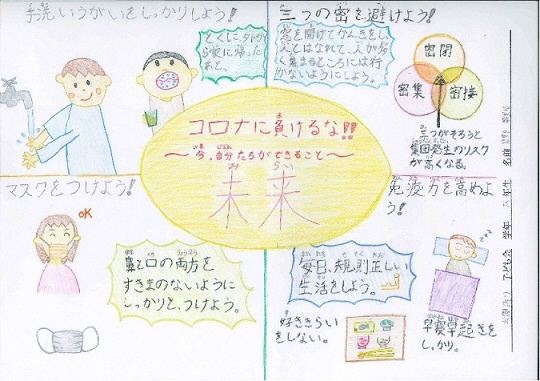 手洗いうがいをしっかりしよう!
とくに、外か
ら家に帰った
あと。
三つの密を避けよう!
窓を開けてかんきをし、
人とはなれて、人が多
く集まるところには行
かないようにしよう。
密閉
密集
密接
三つがそろうと
集団発生のリスク
が高くなる。
コロナに負けるな!!
〜今、自分たちができること〜
みらい
未来
マスクをつけよう!
OK
鼻と口の両方を
すきまのないように
しっかりと、つけよう。
免疫力を高めよ
う!
毎日、規則正しい
生活をしよう。
好ききらい
をしない。
早寝早起きを
しっかり。
子ども会 学年 六年生
名前